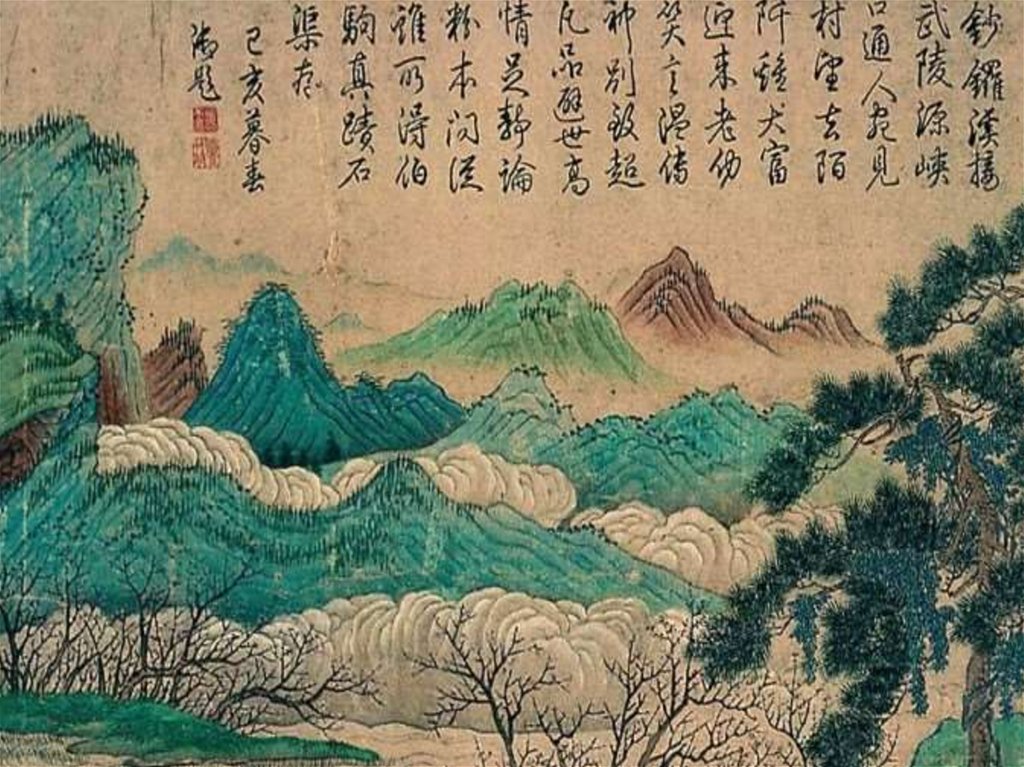 鈔鑼溪接
武陵源峽
口通人宛見
村望去陌
阡雞犬富
迎来老幼
笑言温傳
神別致超
凡品避世高
情足静論
粉本问従
誰所得伯
駒真蹟石
渠存
己亥暮春
御題